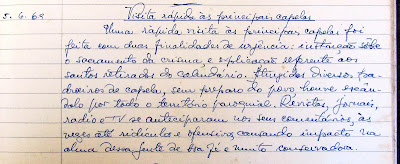 5.6.69 Visita rápida às principais capelas
Uma rápida visita às principais capelas foi
feita com duas finalidades de urgência: instrução sôbre
o sacramento da crisma, e explicação referente aos
santos retirados do calendário. Atingidos diversos pa-
droeiros de capela, sem preparo do povo houve escân-
dalo por todo o território paroquial. Revistas, jornais,
radio e TV se anteciparam nos seus comentários, às
vezes até ridículos e ofensivos, causando impacto na
alma dessa gente de boa fé e muito conservadora.